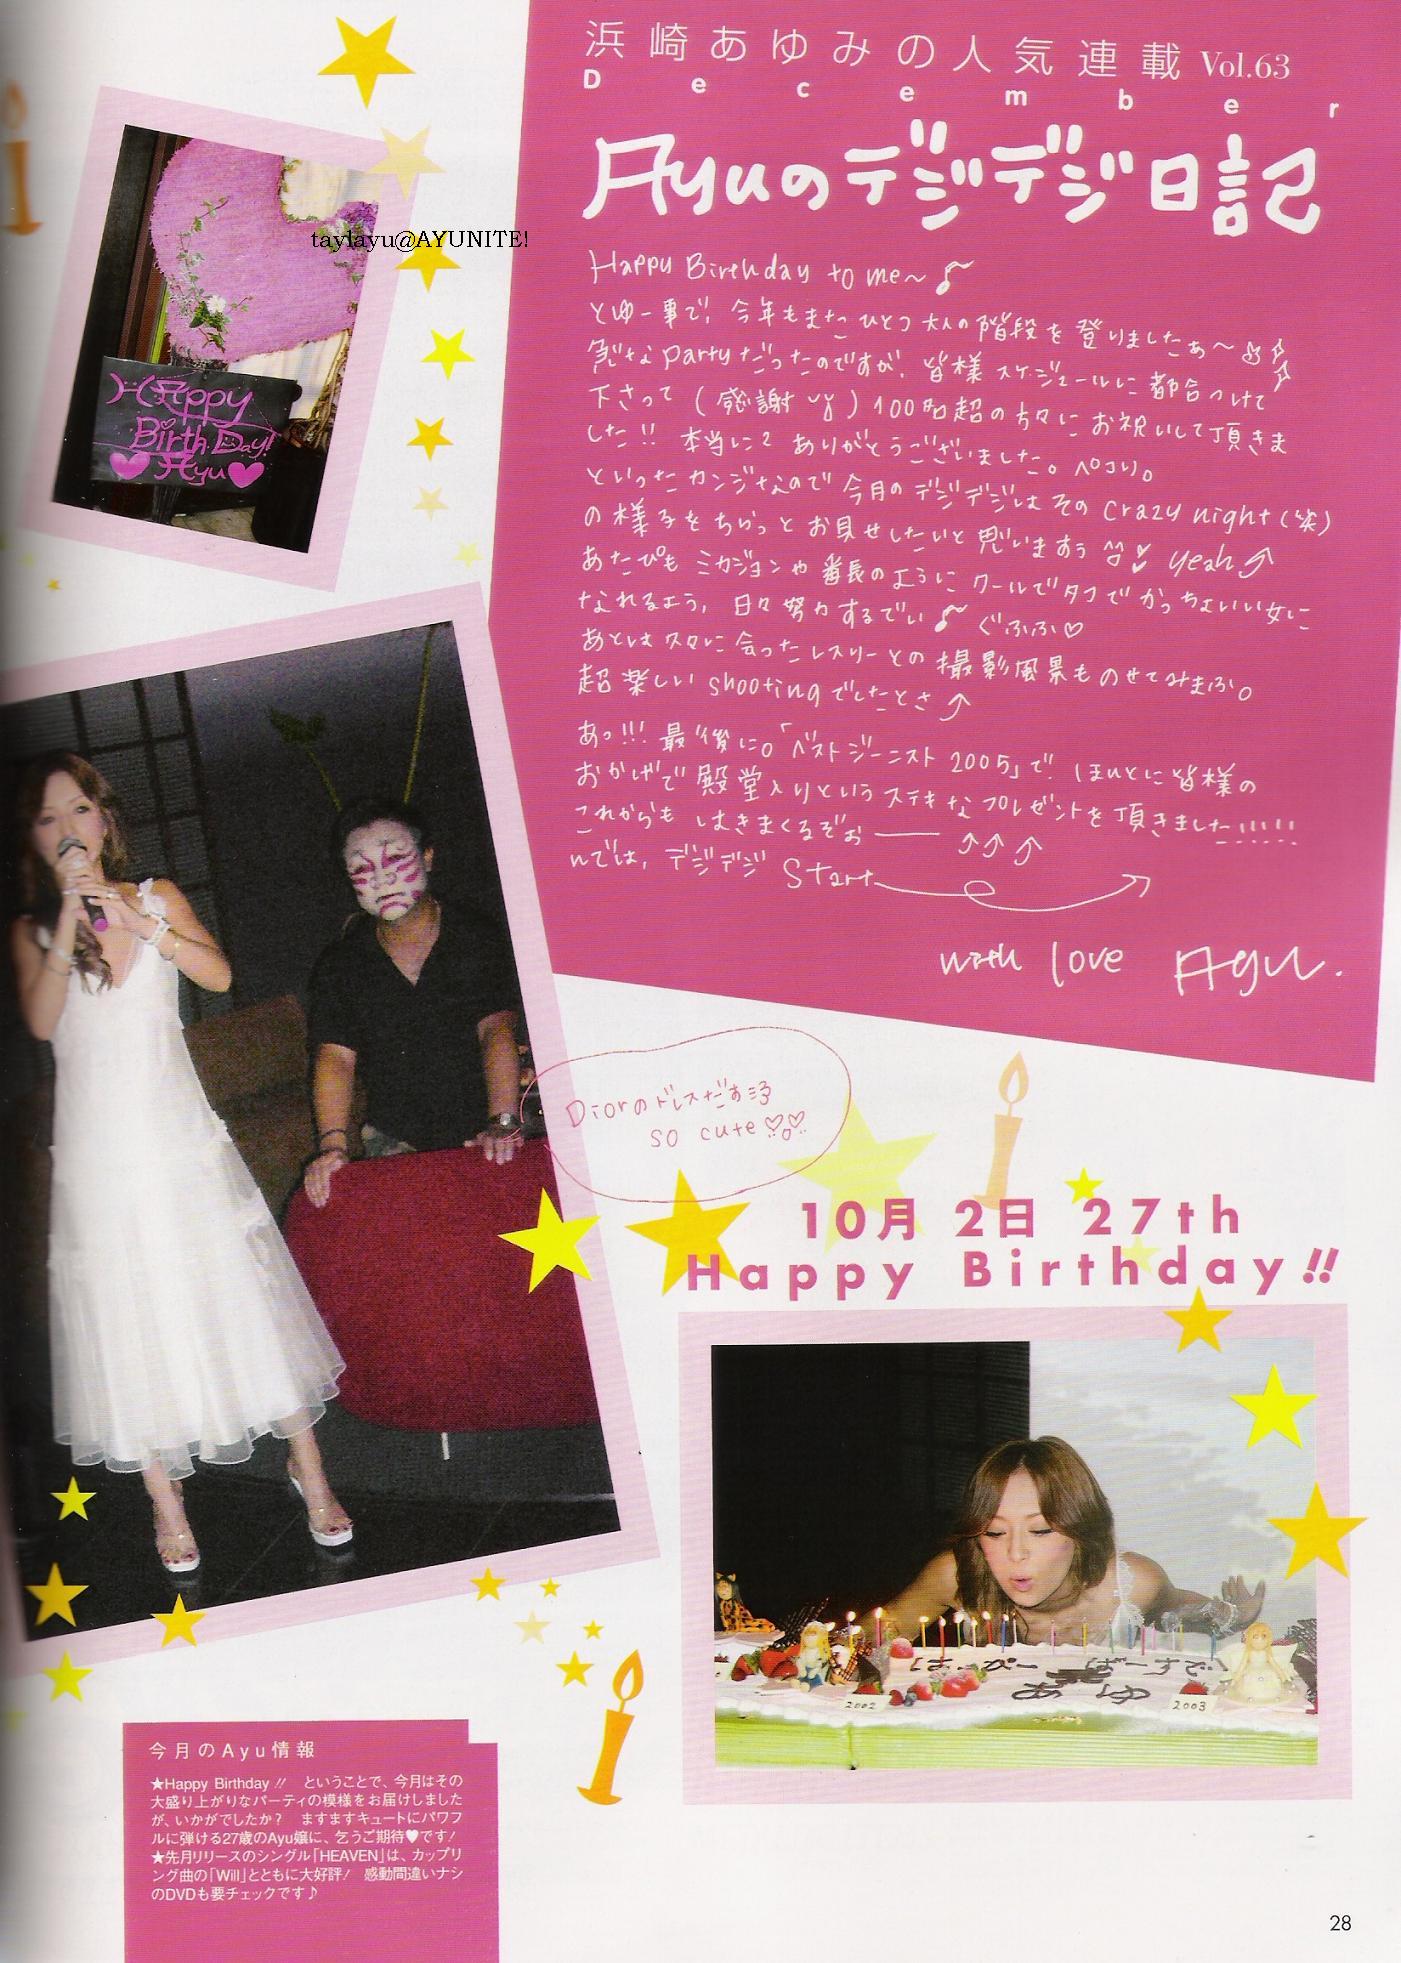 浜崎あゆみの人気連載 Vol.63
December
Ayuのデジデジ日記
taylayu@AYUNITE!
Happy Birth Day!
Ayu
Happy Birthday to me~♪
とゆー事で、今年もまたひとつ大人の階段を登りましたぁ～
急なPartyだったのですが、皆様スケジュールに都合つけて
下さって(感謝)100名超の方々にお祝いして頂きま
した!! 本当に2ありがとうございました。ペコリ。
といったカンジなので今月のデジデジはそのcrazy night(笑)
の様子をちらっとお見せしたいと思いますぅ yeah
あたぴもミカジョンや番長のようにクールでタフでかっちょいい女に
なれるよう、日々努力するでい♪ ぐふふ♡
あとは久々に会ったレスリーとの撮影風景ものせてみまふ。
超楽しいshootingでしたとさ
あっ!!! 最後に。「ベストジーニスト2005」で、ほんとに皆様の
おかげで殿堂入りというステキなプレゼントを頂きました!!!!!!
これからもはきまくるぞぉ――
んでは、デジデジStart
with love Ayu.
Diorのドレスだぁ
so cute
10月2日 27th
Happy Birthday!!
はっぴー ばーすでい
あゆ
2002
2003
今月のAyu情報
★Happy Birthday!! ということで、今月はその
大盛り上がりなパーティの模様をお届けしました
が、いかがでしたか? ますますキュートにパワフ
ルに弾ける27歳のAyu嬢に、乞うご期待♥です!
★先月リリースのシングル「HEAVEN」は、カップリ
ング曲の「Will」とともに大好評! 感動間違いナシ
のDVDも要チェックです♪
28